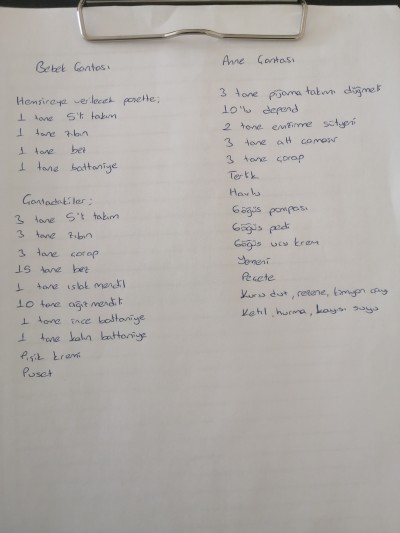 Bebek Çantası
Hemşireye verilecek poşette;
1 tane 5'li takım
1 tane zıbın
1 tane bez
1 tane battaniye
Çantadakiler;
3 tane 5'li takım
3 tane zıbın
3 tane çorap
15 tane bez
1 tane ıslak mendil
10 tane ağız mendili
1 tane ince battaniye
1 tane kalın battaniye
Pişik kremi
Puset
Anne Çantası
3 tane pijama takımı düğmeli
10'lu depend
2 tane emzirme sütyeni
3 tane alt çamaşır
3 tane çorap
Terlik
Havlu
Göğüs pompası
Göğüs pedi
Göğüs ucu krem
Yemeni
Peçete
Kuru dut, rezene, kimyon çayı
Ketıl, hurma, kayısı suyu